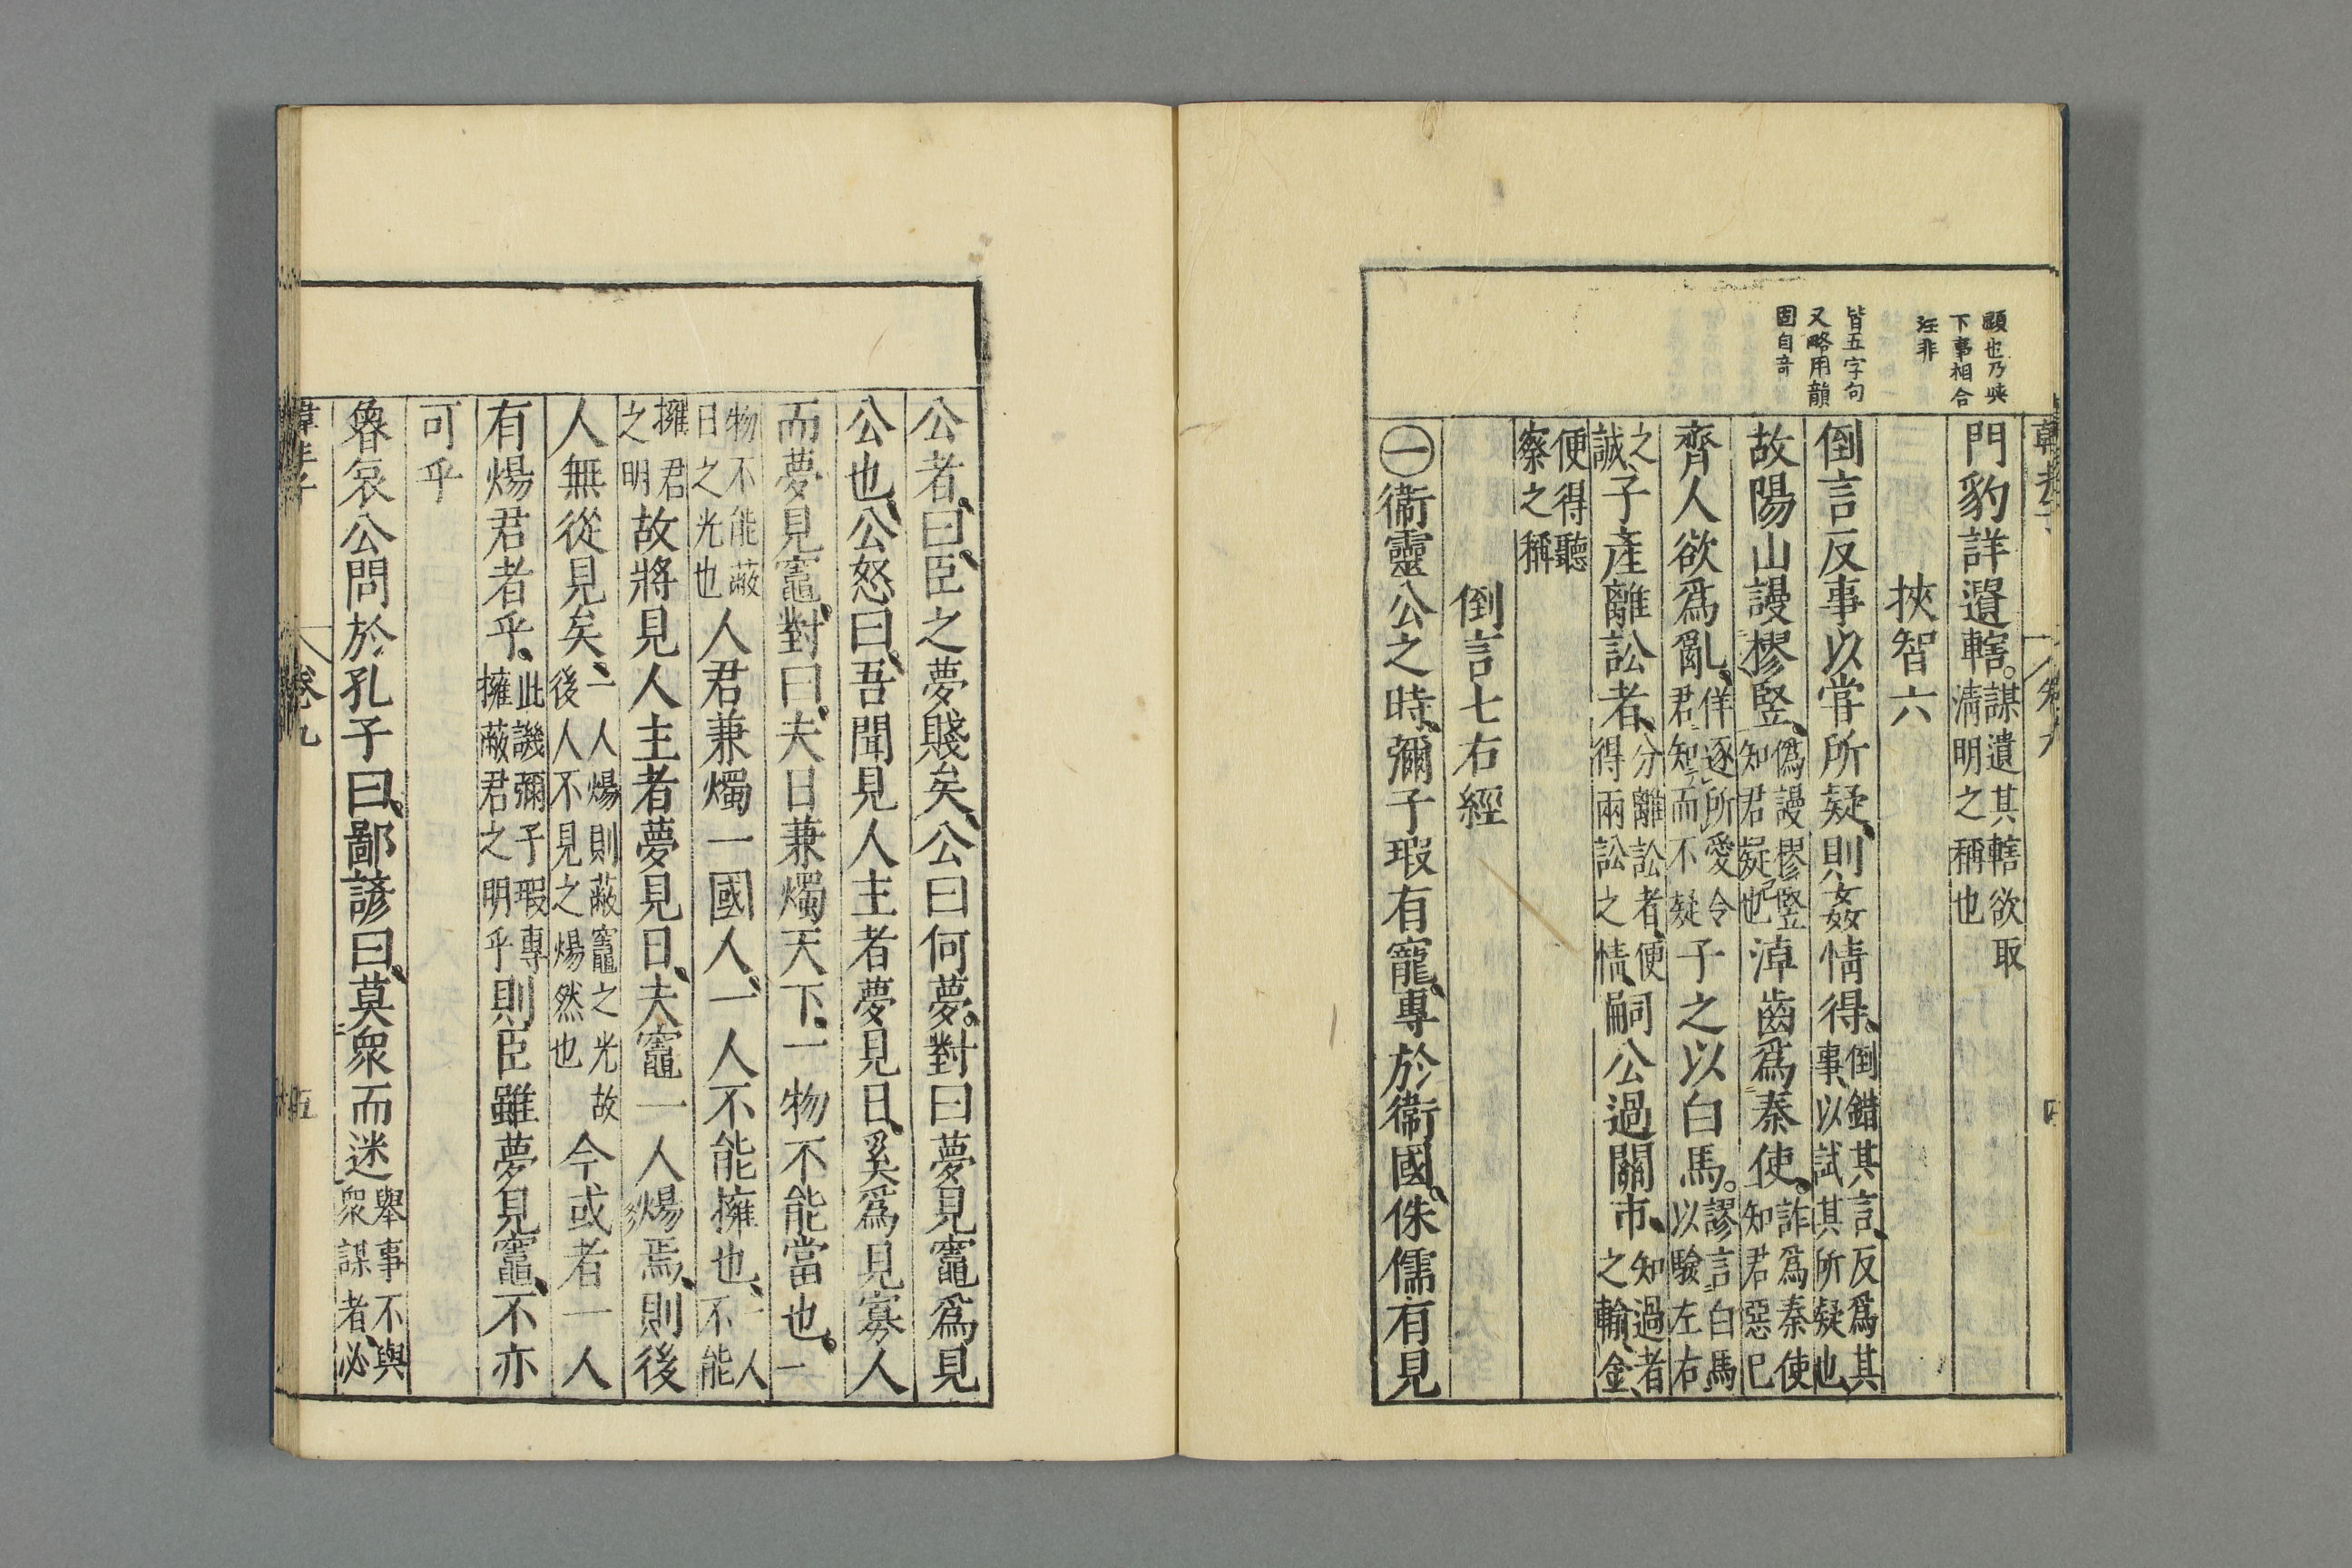 顕也乃與
下事相合
注非
皆五字句
又略用韻
固自奇
門豹詳遺轄。謀遺其轄欲取清明之稱也
挾智六
倒言反事以甞所疑、則姦情得、倒錯其言、反爲其事、以試其所疑也、
故陽山謾樛竪、僞謾樛竪知君疑也淖齒爲秦使、詐爲秦使知君惡已
齊人欲爲亂、佯逐所愛令君知而不疑子之以白馬。謬言白馬以驗左右
之誠子產離訟者、分離訟者、便得兩訟之情、嗣公過關市、知過者之輸金、
便得聽察之稱
倒言七右經
㊀衞靈公之時、彌子瑕有寵、專於衞國、侏儒有見
公者、曰、臣之夢賤矣、公曰何夢、對曰夢見竈爲見
公也、公怒曰、吾聞見人主者夢見日、奚爲見寡人
而夢見竈、對曰、夫日兼燭天下、一物不能當也。一
物不能蔽日之光也人君兼燭一國人、一人不能擁也、一人不能
擁君之明故將見人主者夢見日、夫竈一人煬焉、則後
人無從見矣、一人煬則蔽竈之光故後人不見之煬然也今或者一人
有煬君者乎、此譏彌子瑕專擁蔽君之明乎則臣雖夢見竈、不亦
可乎
魯哀公問於孔子曰、鄙諺曰、莫衆而迷舉事不與衆謀者、必
卷九
五